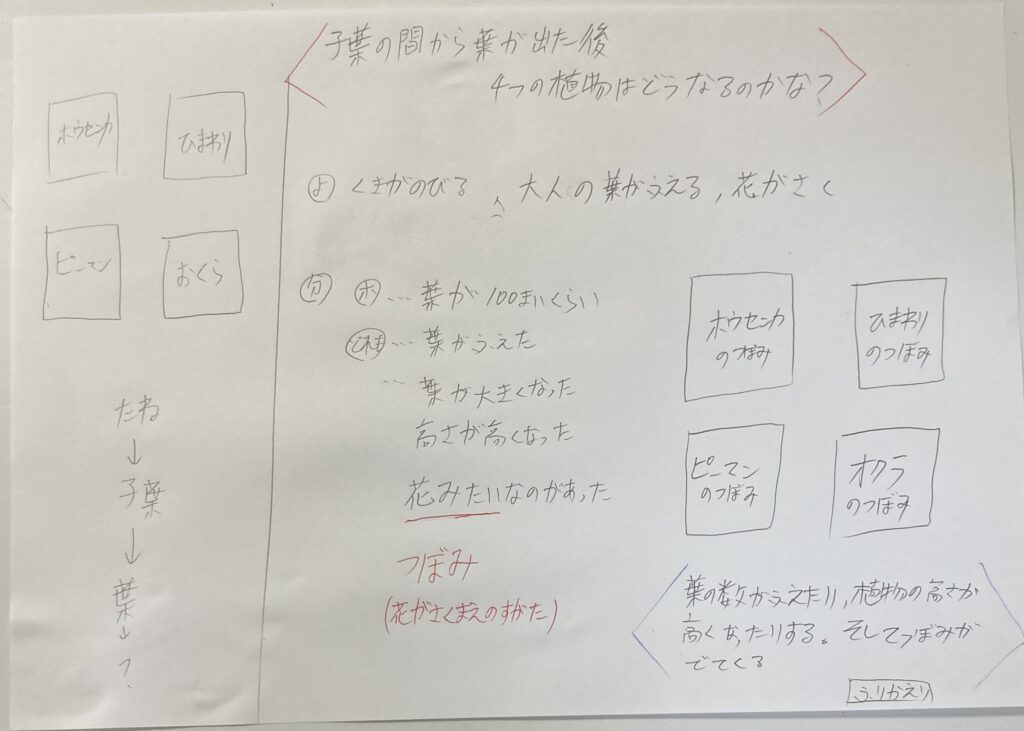 子葉の間から葉が出た後
4つの植物はどうなるのかな?
ホウセンカ
ひまわり
ピーマン
おくら
たね
↓
子葉
↓
葉
↓
?
よ くきがのびる 大人の葉がふえる,花がさく
分 ホ…葉が100まいくらい
どれも…葉がふえた
…葉が大きくなった
高さが高くなった
花みたいなのがあった
つぼみ
(花がさくまえのすがた)
ホウセンカ
のつぼみ
ひまわり
のつぼみ
ピーマン
のつぼみ
オクラ
のつぼみ
葉の数がふえたり,植物の高さが
高くなったりする。そしてつぼみが
でてくる
ふりかえり